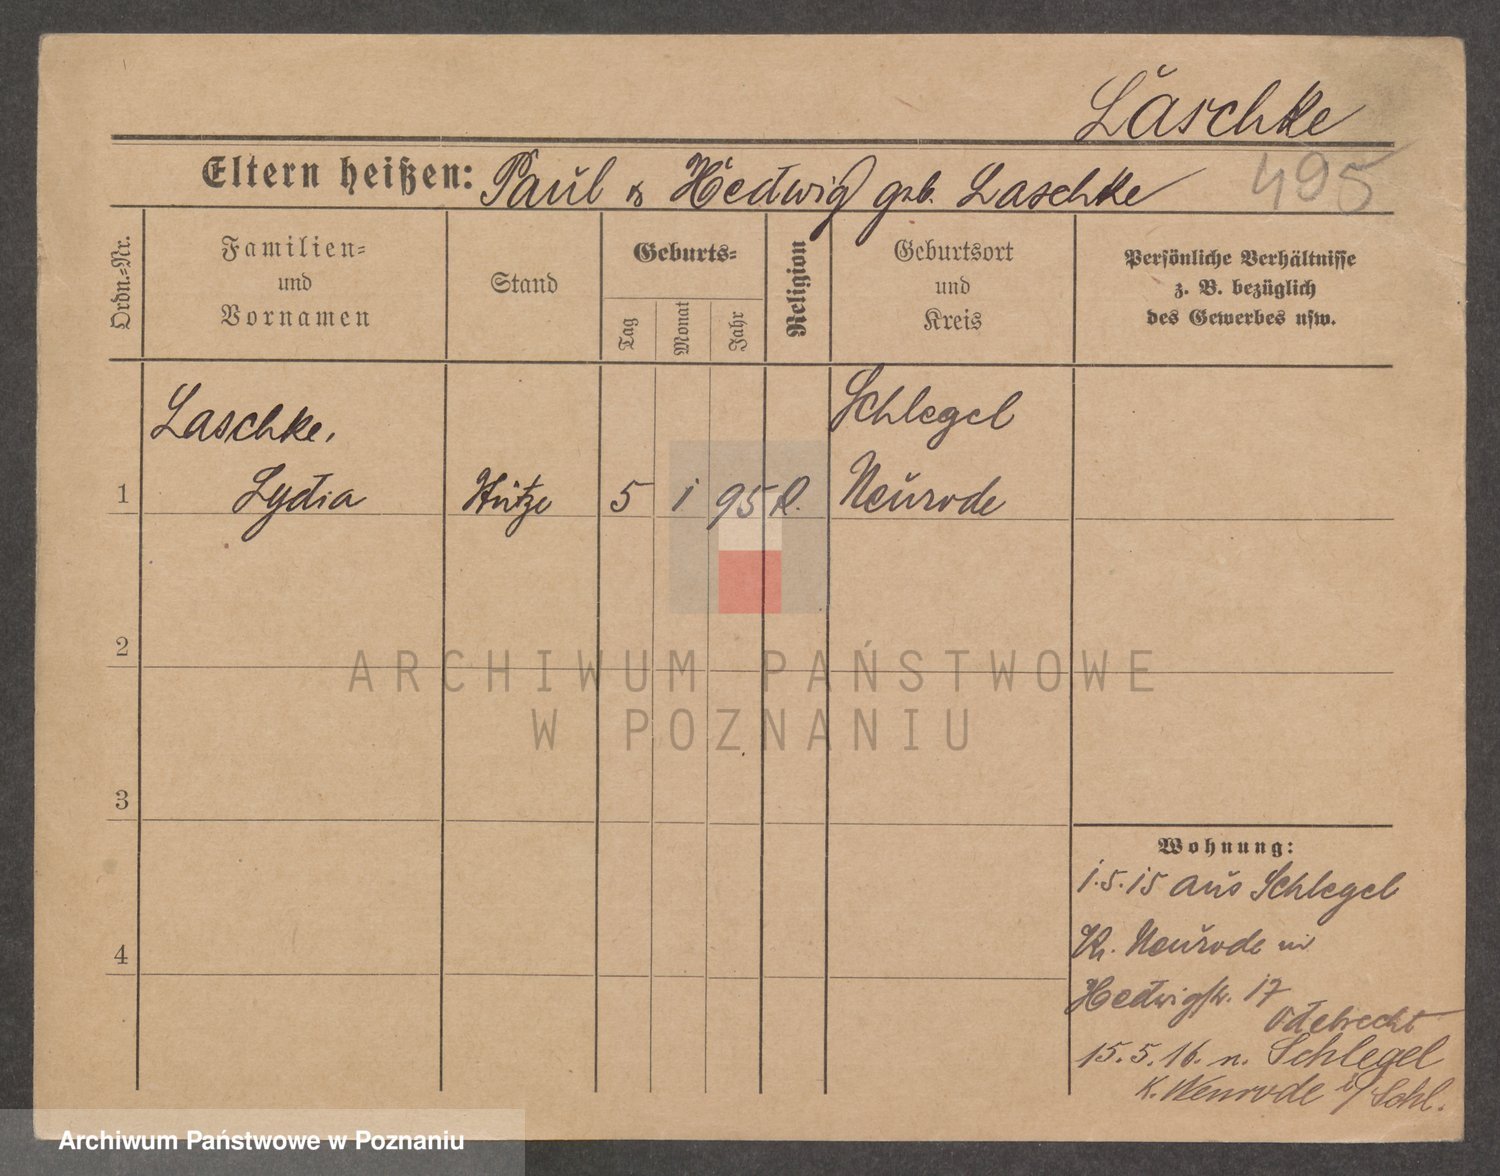 Laschke
495
Eltern heißen: Paul & Hedwig geb. Laschke
Ordn.=Nr.
Familien=
und
Vornamen
Stand
Geburts=
Tag
Monat
Jahr
Religion
Geburtsort
und
Kreis
Persönliche Verhältnisse
z. B. bezüglich
des Gewerbes usw.
Laschke,
Schlegel
1 Lydia Stütze 5 1 95 k. Neurode
2
3
4
Wohnung:
1.5.15 aus Schlegel
Kr. Neurode in
Hedwigstr. 17
Odebrecht
15.5.16. n. Schlegel
K. Neurode i/Schl.
ARCHIWUM PAŃSTWOWE
W POZNANIU
Archiwum Państwowe w Poznaniu